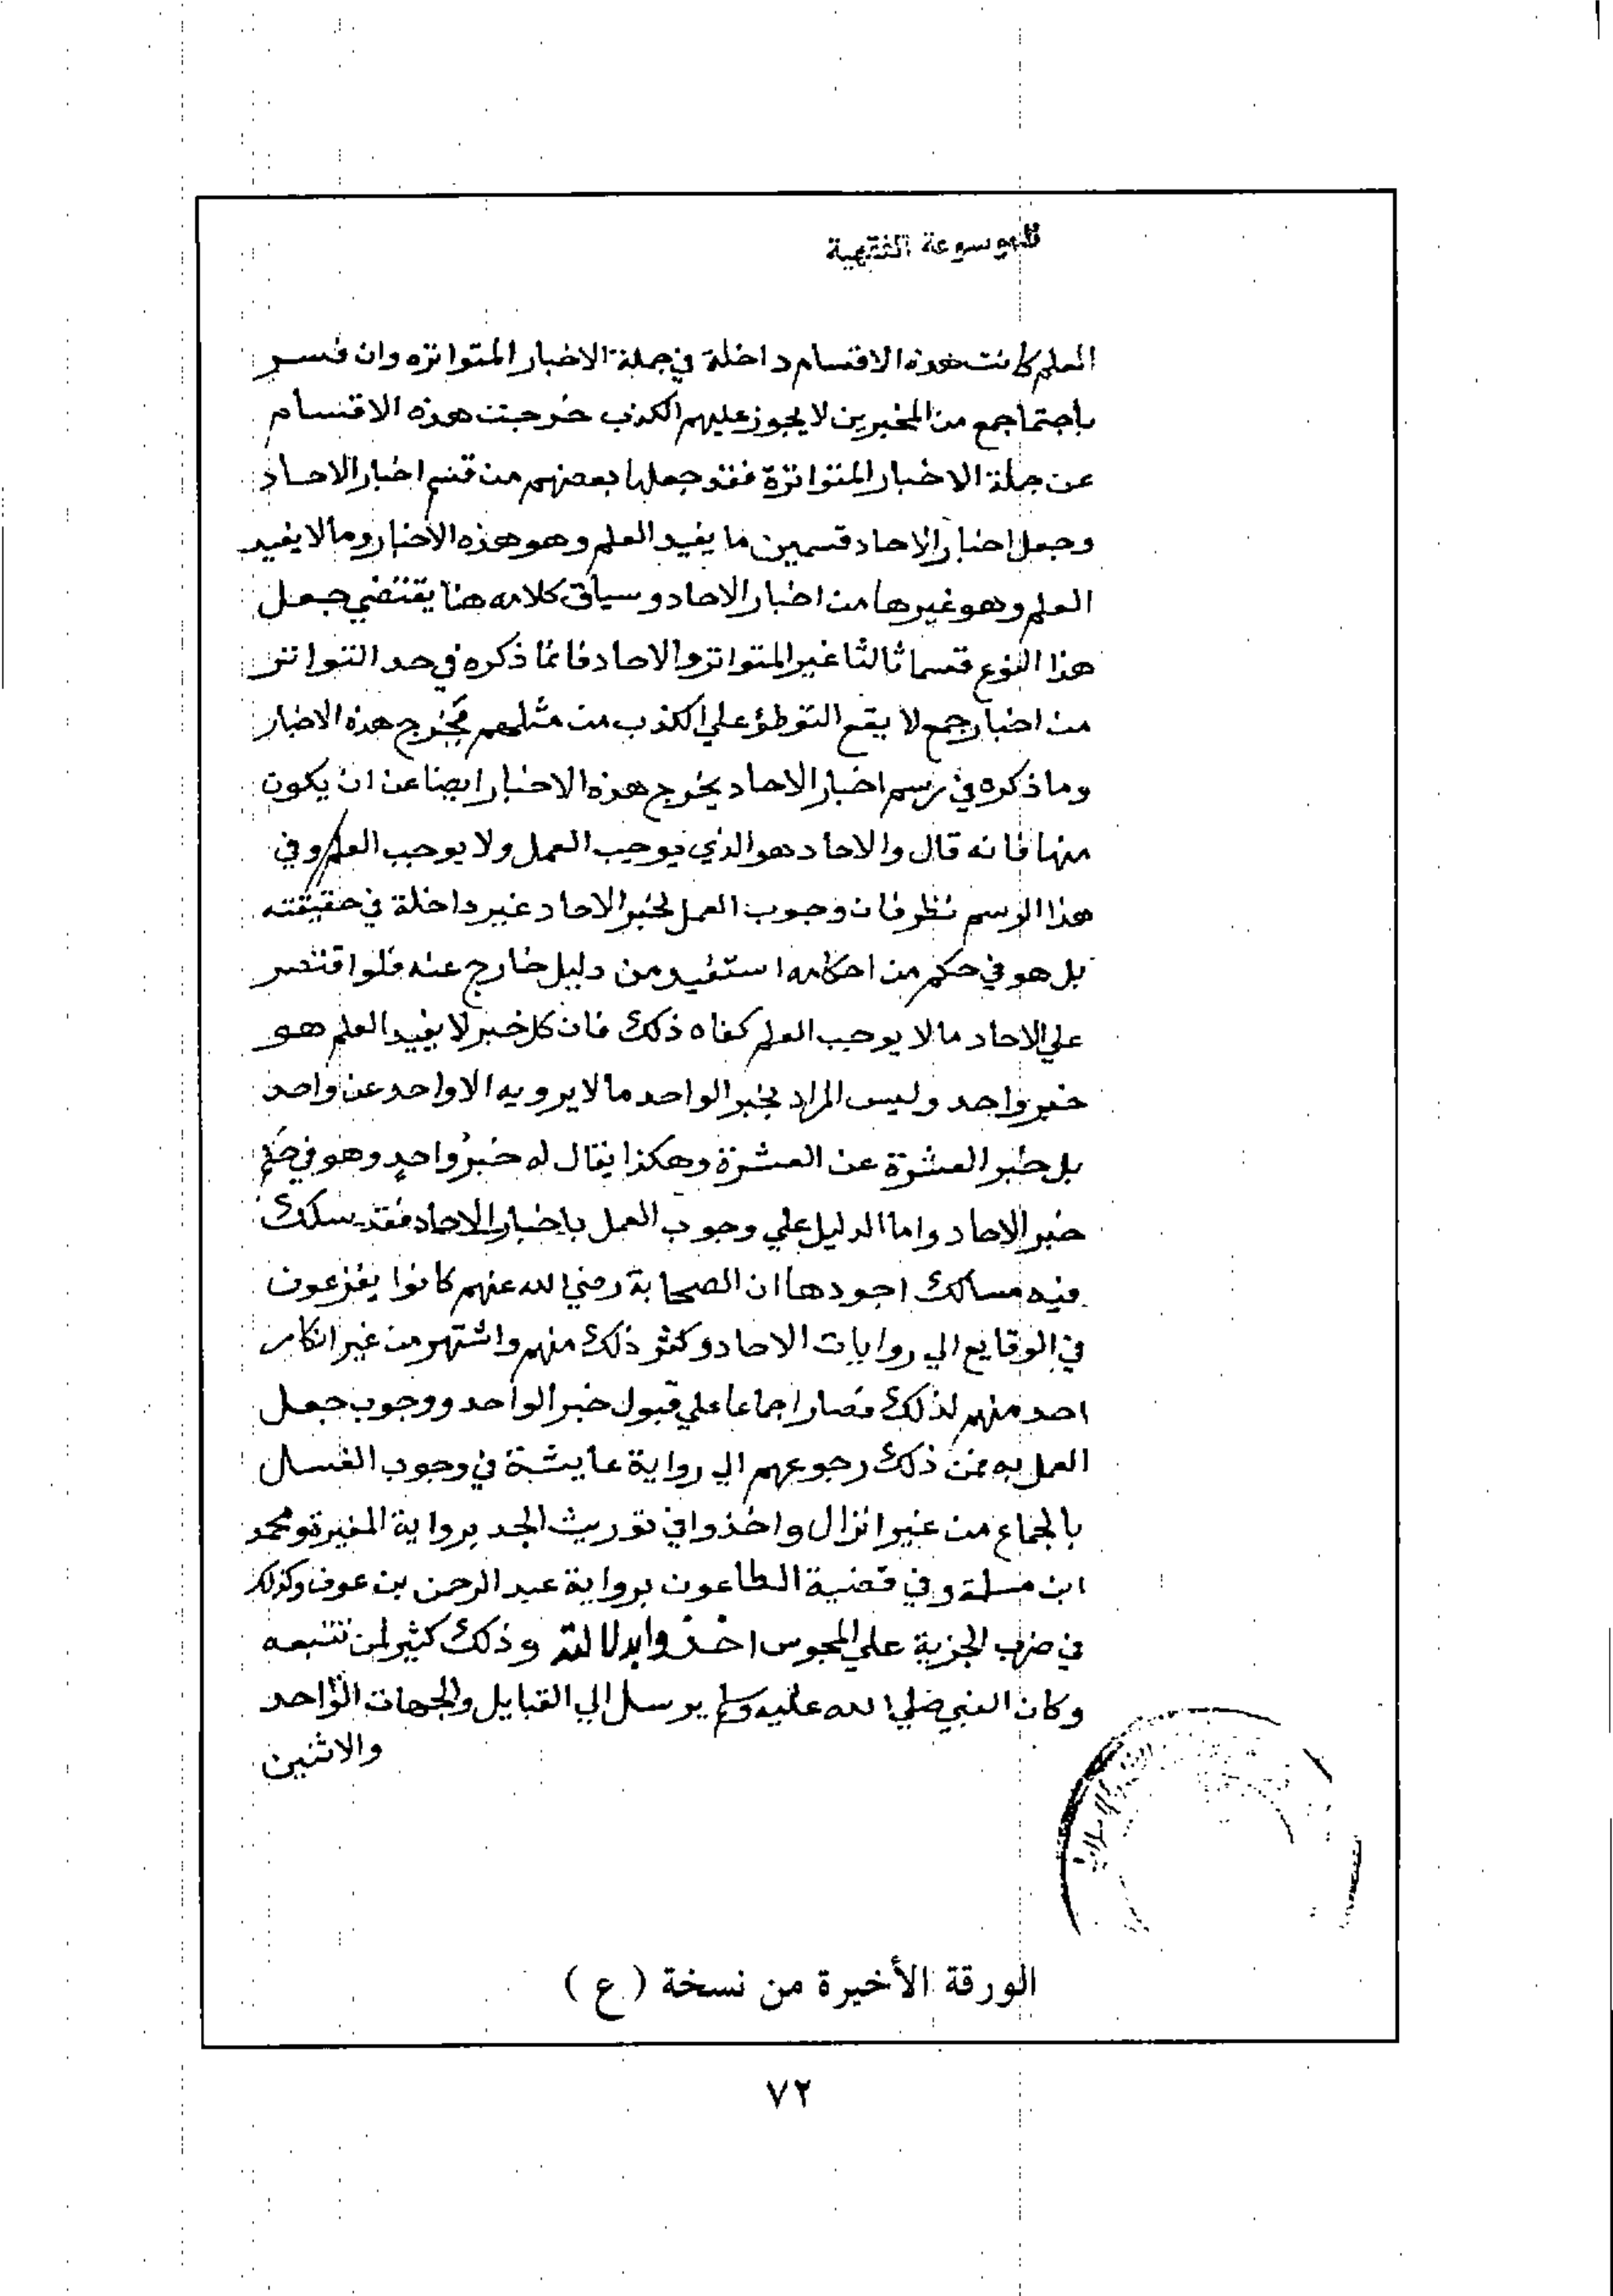 للموسوعة الفقهية
العلم كانت هذه الاقسام داخلة في جملة الاخبار المتواتره وان فسر
باجتماجمع من المخبرين لا يجوز عليهم الكذب خرجت هذه الاقسام
عن جملة الاخبار المتواترة فقد جعلها بعضهم من قسم اخبار الاحاد
وجعل اخبار الاحاد قسمين ما يفيد العلم وهو هذه الاخبار وما لا يفيد
العلم وهو غيرها من اخبار الاحاد وسياق كلامه هنا يقتضي جعل
هذا النوع قسما ثالثا غير المتواتر والاحاد فانما ذكره في حد التواتر
من اخبار جمع لا يقع التوطؤ علي الكذب من مثلهم يخرج هذه الاخبار
وما ذكره في رسم اخبار الاحاد يخرج هذه الاخبار ايضا عن ان يكون
منها فانه قال والاحاد هو الذي يوجب العمل ولا يوجب العلم وفي
هذا الرسم نظر فان وجوب العمل لخبر الاحاد غير داخلة في حقيقته
بل هو في حكم من احكامه استفيد من دليل خارج عنه فلو اقتصر
علي الاحاد ما لا يوجب العلم كفاه ذلك فان كل خبر لا يفيد العلم هو
خبر واحد وليس المراد بخبر الواحد ما لا يرويه الا واحد عن واحد
بل خبر العشرة عن العشرة وهكذا يقال له خبر واحد وهو في حكم
خبر الاحاد واما الدليل علي وجوب العمل باخبار الاحاد فقد سلك
فيه مسالك اجودها ان الصحابة رضي الله عنهم كانوا يفزعون
في الوقايع الي روايات الاحاد وكثر ذلك منهم واشتهر من غير انكار
احد منهم لذلك فصار اجماعا علي قبول خبر الواحد ووجوب جعل
العمل به فمن ذلك رجوعهم الي رواية عايشة في وجوب الغسال
بالجماع من غير انزال واخذوا في توريث الجد برواية المغيرة ومحمد
ابن مسلمة وفي قضية الطاعون برواية عبد الرحمن بن عوف وكذلك
في ضرب الجزية علي المجوس اخذوا وذلك كثير لمن تتبعه
وكان النبي صلي الله عليه وسلم يرسل الي القبايل والجهات الواحد
والاثنين
الورقة الأخيرة من نسخة ( ع )
٧٢